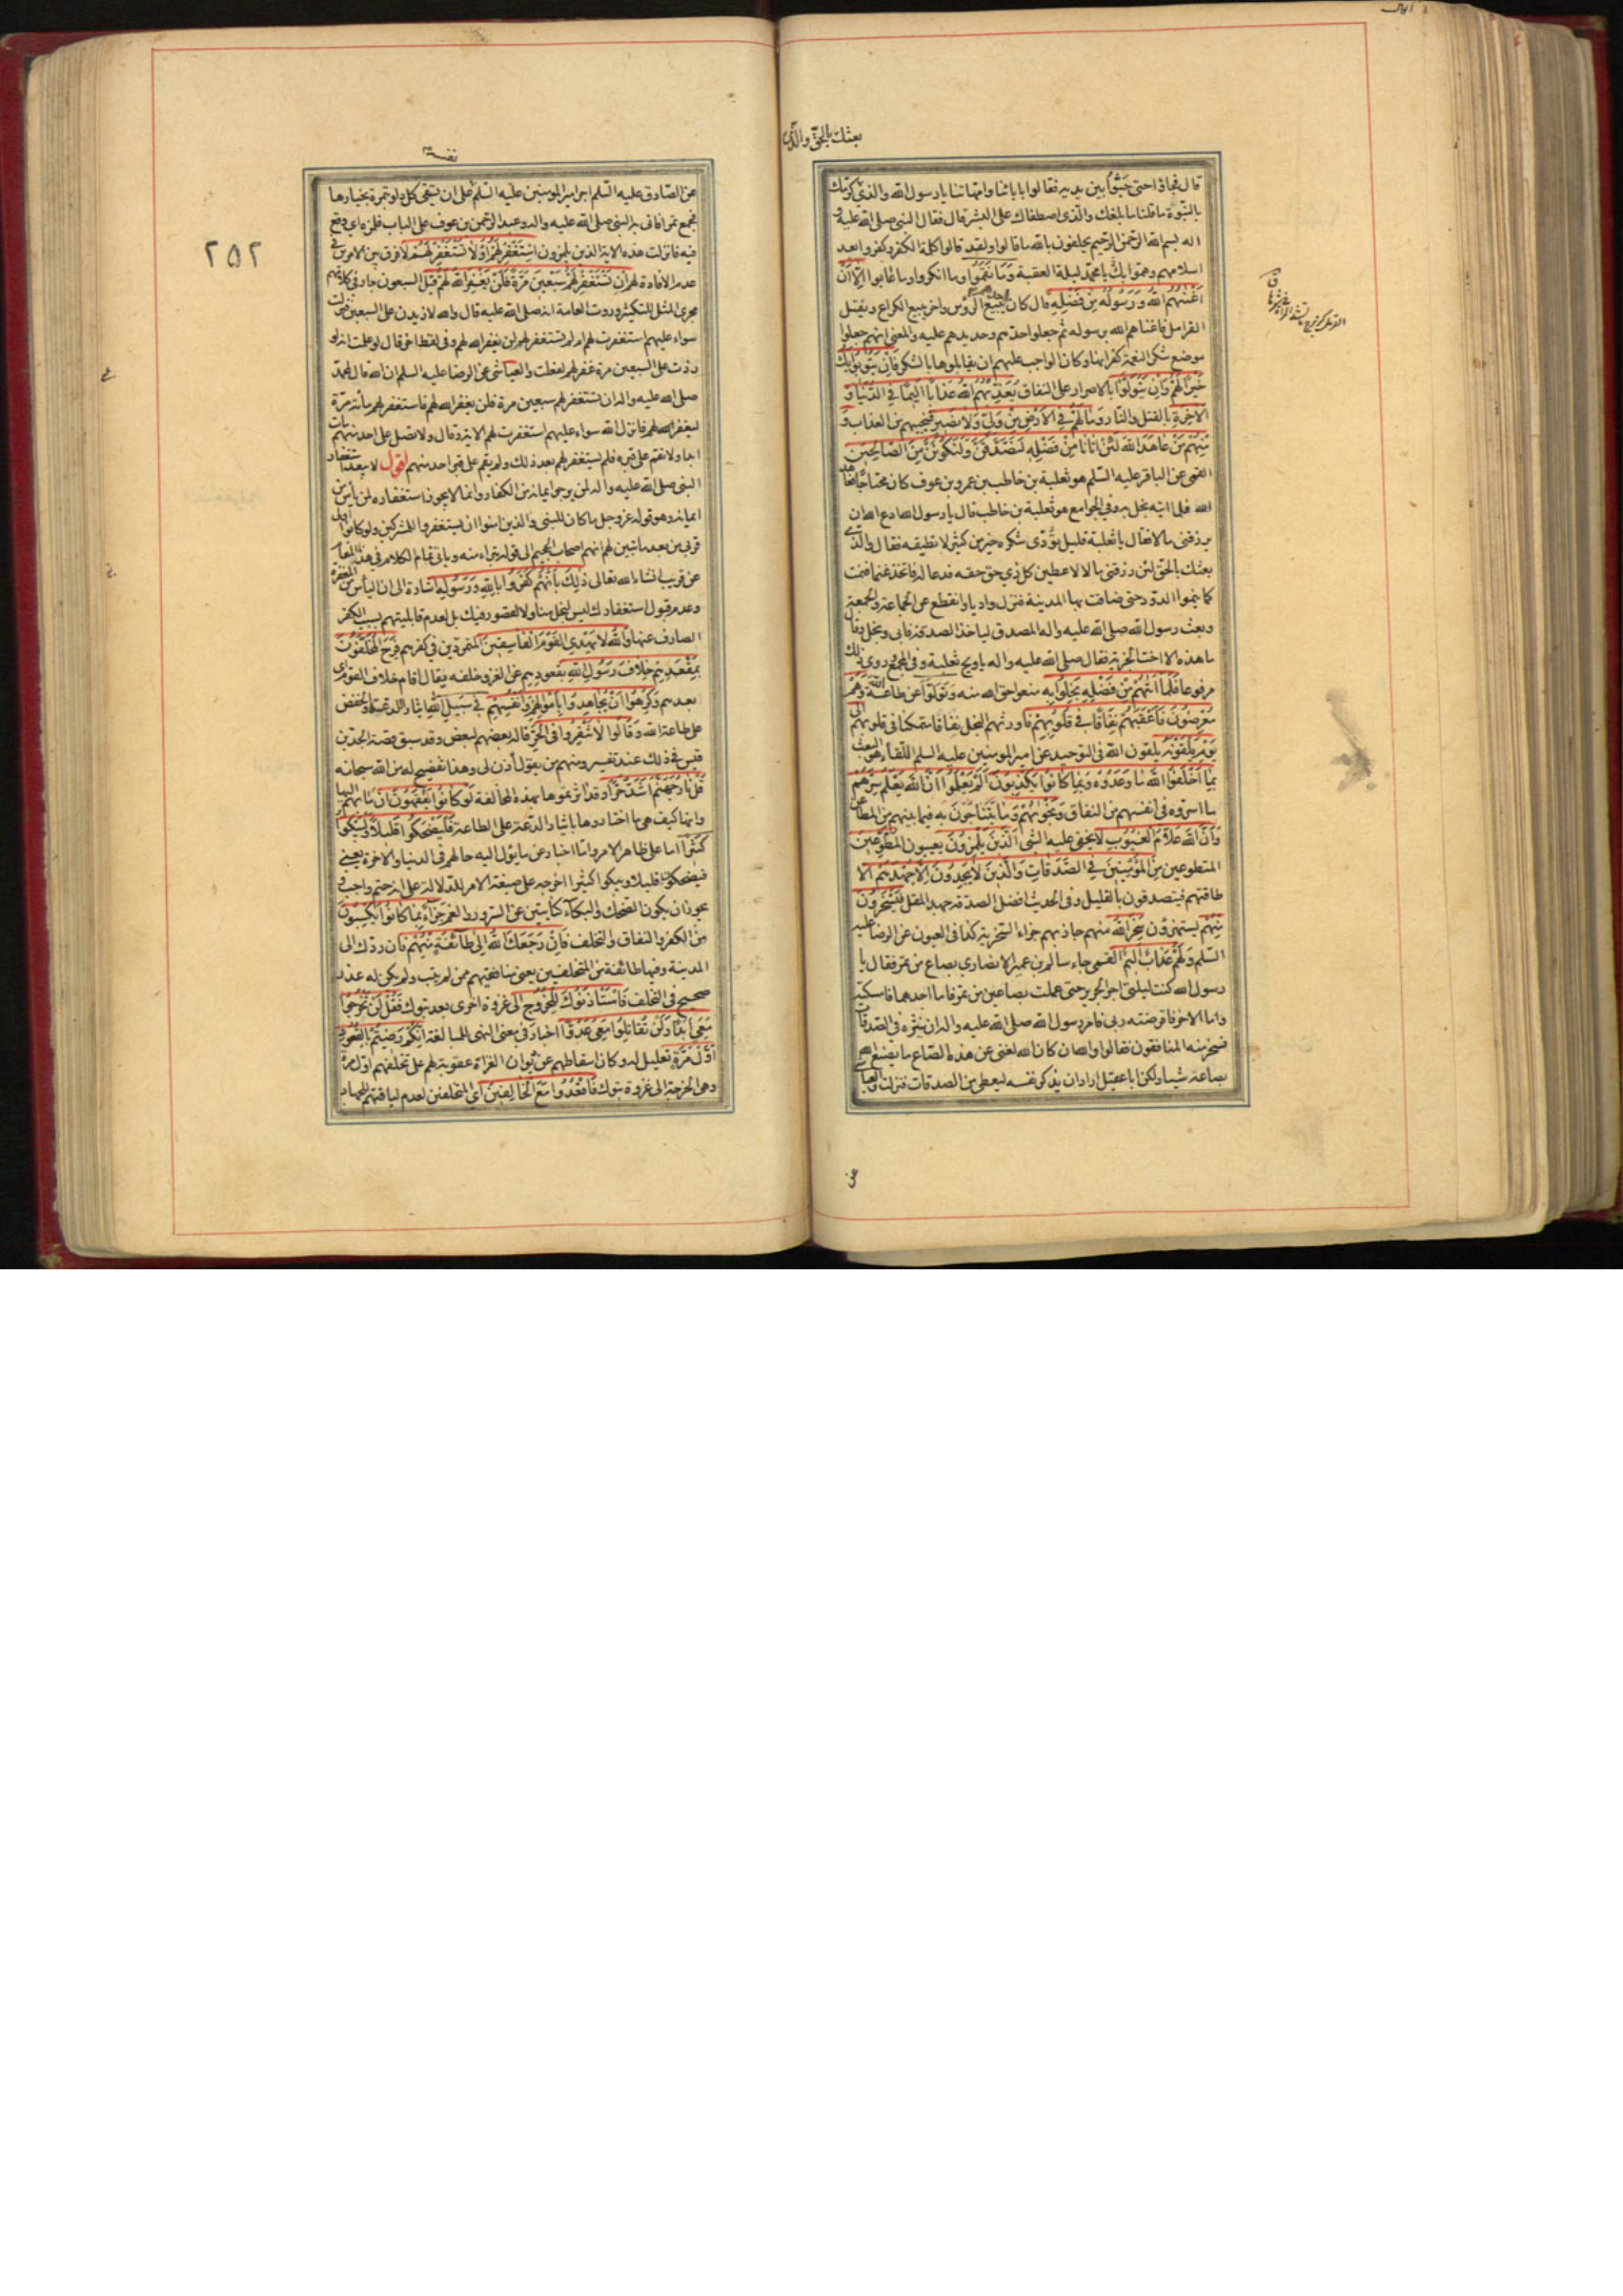 قال فجاؤا حتى جثوا بين يديه فقالوا بابائنا وامهاتنا يا رسول الله والذي كرمك
بالنبوة ما قلنا ما بلغك والذي اصطفاك على البشر قال فقال النبي صلى الله عليه و
اله بسم الله الرحمن الرحيم يحلفون بالله ما قالوا ولقد قالوا كلمة الكفر وكفروا بعد
اسلامهم وهموا بك يا محمد ليلة العقبة وما نقموا وما انكروا وما عابوا الا ان
اغنيهم الله ورسوله من فضله قال كان احدهم يبيع الرؤس واخر يبيع الكراع ويفتل
القرامل فاغناهم الله برسوله ثم جعلوا حدهم وحديدهم عليه والمعنى انهم جعلوا
موضع شكر النعمة كفرانها وكان الواجب عليهم ان يقابلوها بالشكر فان يتوبوا يك
خيرا لهم وان يتولوا بالاصرار على النفاق يعذبهم الله عذابا اليما في الدنيا و
الاخرة بالقتل والنار وما لهم في الارض من ولي ولا نصير فينجيهم من العذاب و
منهم من عاهد الله لئن اتانا من فضله لنصدقن ولنكونن من الصالحين
القمي عن الباقر عليه السلم هو ثعلبة بن خاطب بن عمرو بن عوف كان محتاجا فعاهد
الله فلما اتيه بخل به وفي الجوامع هو ثعلبة بن خاطب قال يا رسول الله ادع الله ان
يرزقني مالا فقال يا ثعلبة قليل تؤدي شكره خير من كثير لا تطيقه فقال والذي
بعثك بالحق لئن رزقني مالا لاعطين كل ذي حق حقه فدعا له فاتخذ غنما فنمت
كما ينموا الدود حتى ضاقت بها المدينة فنزل واديا وانقطع عن الجماعة والجمعة
وبعث رسول الله صلى الله عليه واله المصدق لياخذ الصدقة فابى وبخل وقال
ما هذه الا اخت الجزية فقال صلى الله عليه واله يا ويح ثعلبة وفي المجمع وروي ذلك
مرفوعا فلما اتيهم من فضله بخلوا به منعوا حق الله منه وتولوا عن طاعة الله وهم
معرضون فاعقبهم نفاقا في قلوبهم فاورثهم البخل نفاقا متمكنا في قلوبهم الى
يوم يلقونه يلقون الله في التوحيد عن امير المومنين عليه السلم اللقاء هو البعث
بما اخلفوا الله ما وعدوه وبما كانوا يكذبون الم يعلموا ان الله يعلم سرهم
ما اسروه في انفسهم من النفاق ونجويهم وما يتناجون به فيما بينهم من المطاعن
وان الله علام الغيوب لا يخفى عليه شى الذين يلمزون يعيبون المطوعين
المتطوعين من المؤمنين في الصدقات والذين لا يجدون الا جهدهم الا
طاقتهم فيتصدقون بالقليل وفي الحديث افضل الصدقة جهد المقل فيسخرون
منهم يستهزؤن سخر الله منهم جازيهم جزاء السخرية كذا في العيون عن الرضا عليه
السلم ولهم عذاب اليم القمي جاء سالم بن عمير الانصاري بصاع من تمر فقال يا
رسول الله كنت ليلتي اجر الجرير حتى عملت بصاعين من تمر فاما احدهما فامسكته
واما الاخر فاقرضته ربي فامر رسول الله صلى الله عليه واله ان ينثره في الصدقات
فسخر منه المنافقون فقالوا والله ان كان الله لغني عن هذا الصاع ما يصنع الله
بصاعه شيئا ولكن ابا عقيل اراد ان يذكر نفسه ليعطى من الصدقات فنزلت والعياشي
عن
بعثك بالحق والذي
٢٥٢
عن الصادق عليه السلم اجر امير المومنين عليه السلم على ان يستقي كل دلو بتمرة بخيارها
فجمع تمرا فاتى به النبي صلى الله عليه واله وعبد الرحمن بن عوف على الباب فلمزه اي وقع
فيه فانزلت هذه الاية الذين يلمزون استغفر لهم او لا تستغفر لهم لا فرق بين الامرين في
عدم الافادة لهم ان تستغفر لهم سبعين مرة فلن يغفر الله لهم قيل السبعون جار في كلامهم
مجرى المثل للتكثير وروت العامة انه صلى الله عليه قال والله لازيدن على السبعين فنزلت
سواء عليهم استغفرت لهم ام لم تستغفر لهم لن يغفر الله لهم وفي لفظ اخر قال لو علمت انه لو
زدت على السبعين مرة غفر لهم لفعلت والعياشي عن الرضا عليه السلم ان الله قال لمحمد
صلى الله عليه واله ان تستغفر لهم سبعين مرة فلن يغفر الله لهم فاستغفر لهم مأة مرة
ليغفر الله لهم فانزل الله سواء عليهم استغفرت لهم الاية وقال ولا تصل على احد منهم مات
ابدا ولا تقم على قبره فلم يستغفر لهم بعد ذلك ولم يقم على قبر احد منهم اقول لا يبعد استغفار
النبي صلى الله عليه واله لمن يرجوا ايمانه من الكفار وانما لا يجوز استغفاره لمن يأس من
ايمانه وهو قوله عز وجل ما كان للنبي والذين امنوا ان يستغفروا للمشركين ولو كانوا اولي
قربى من بعد ما تبين لهم انهم اصحاب الجحيم الى قوله تبراء منه وياتي تمام الكلام في هذا المقام
عن قريب انشاء الله تعالى ذلك بانهم كفروا بالله ورسوله اشارة الى ان اليأس من المغفرة
وعدم قبول استغفارك ليس لبخل منا ولا لقصور فيك بل لعدم قابليتهم بسبب الكفر
الصارف عنها والله لا يهدي القوم الفاسقين المتمردين في كفرهم فرح المخلفون
بمقعدهم خلاف رسول الله بقعودهم عن الغزو خلفه يقال اقام خلاف القوم اي
بعدهم وكرهوا ان يجاهدوا باموالهم وانفسهم في سبيل الله ايثارا للدعة والخفض
على طاعة الله وقالوا لا تنفروا في الحر قاله بعضهم لبعض وقد سبق قصة الجد بن
قيس في ذلك عند تفسير ومنهم من يقول ائذن لي وهذا تفضيح له من الله سبحانه
قل نار جهنم اشد حرا وقد اثرتموها بهذه المخالفة لو كانوا يفقهون ان مابهم اليها
وانها كيف هي ما اختاروها بايثار الدعة على الطاعة فليضحكوا قليلا وليبكوا
كثيرا اما على ظاهر الامر واما اخبار عن ما يؤل اليه حالهم في الدنيا والاخرة يعني
فيضحكون قليلا ويبكوا كثيرا اخرجه على صيغة الامر للدلالة على انه حتم واجب و
يجوز ان يكون الضحك والبكاء كنايتين عن السرور والغم جزاء بما كانوا يكسبون
من الكفر والنفاق والتخلف فان رجعك الله الى طائفة منهم فان ردك الى
المدينة وفيها طائفة من المتخلفين يعني منافقيهم ممن لم يتب ولم يكن له عذر
صحيح في التخلف فاستاذنوك للخروج الى غزوة اخرى بعد تبوك فقل لن تخرجوا
معي ابدا ولن تقاتلوا معي عدوا اخبار في معنى النهي للمبالغة انكم رضيتم بالقعود
اول مرة تعليل له وكان اسقاطهم عن ديوان الغزاة عقوبة لهم على تخلفهم اول مرة
وهي الخرجة الى غزوة تبوك فاقعدوا مع الخالفين اي المتخلفين لعدم لياقتهم للجهاد